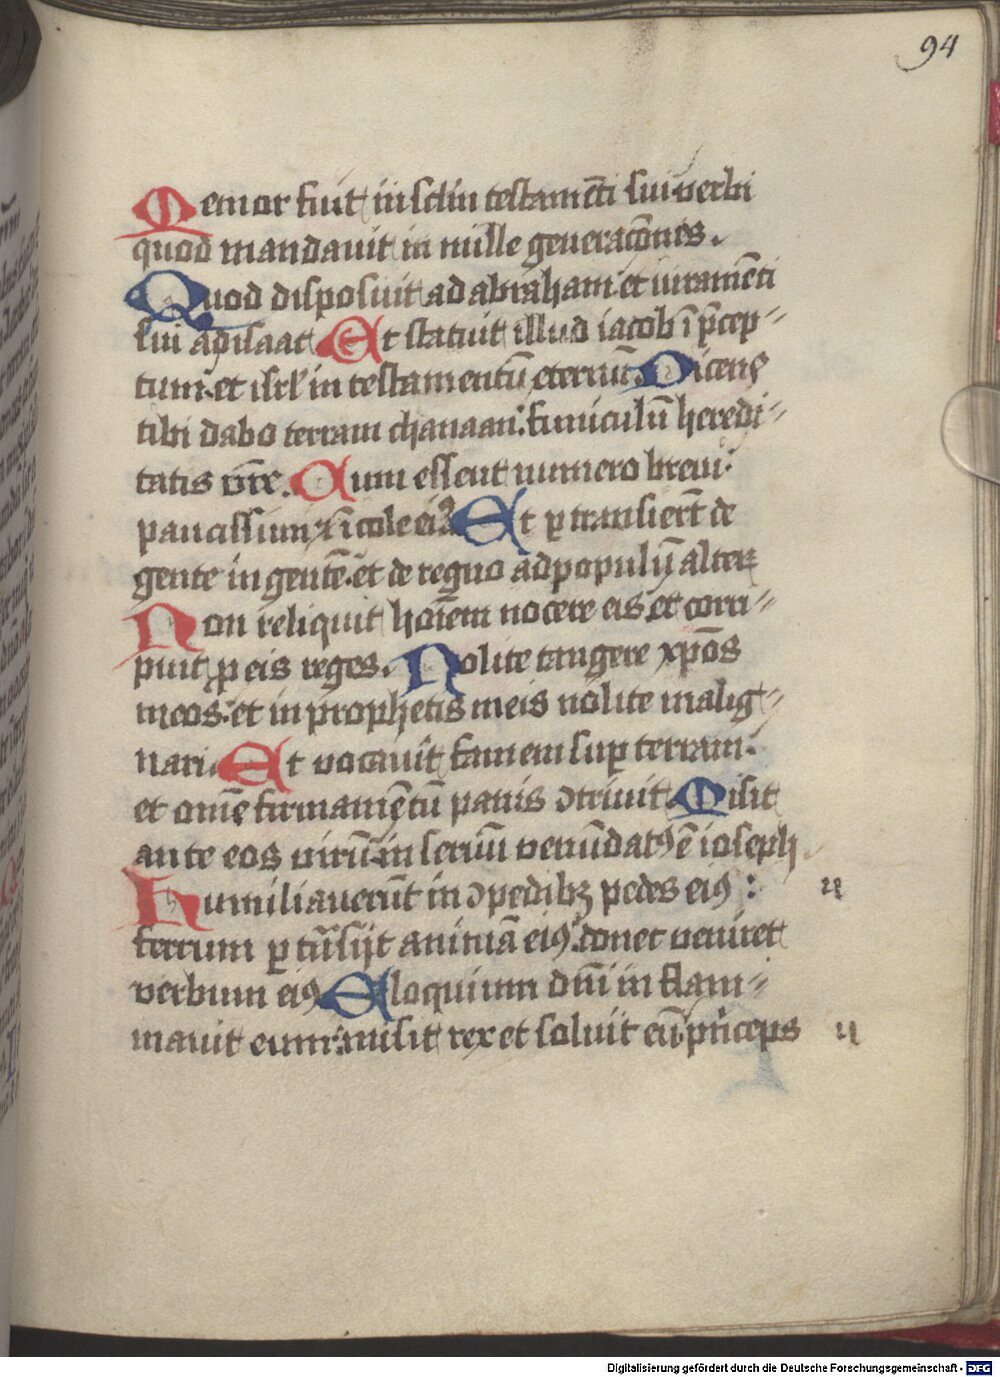 94
Memor fuit in sclm testamēti sui verbi
quod mandauit in mille generacōnes.
Quod disposuit ad abraham et iuramēti
sui ad isaac Et statuit illud iacob ī p̄cep-
tum: et isrl' in testamentū eternū: Dicens
tibi dabo terram chanaan: funiculū heredi-
tatis vr̄e. Cum essent numero breui:
paucissimi ⁊ īcole eiꝰ Et ꝑtransierūt de
gente in gentē: et de regno ad populū alteꝝ
Non reliquit hoīem nocere eis et corri-
puit ꝓ eis reges. Nolite tangere xp̄os
meos: et in prophetis meis nolite malig-
nari. Et vocauit famem suꝑ terram:
et omē firmamētū panis ↄtriuit Misit
ante eos virū: in seruū venūdatꝰ ē ioseph
Humiliauerūt in ↄpedibꝫ pedes eiꝰ :
ferrum ꝑtn̄sijt animā eiꝰ: donec veniret
verbum eiꝰ Eloquium dn̄i in flam-
mauit eum: misit rex et soluit eū: prīceps
Digitalisierung gefördert durch die Deutsche Forschungsgemeinschaft - DFG